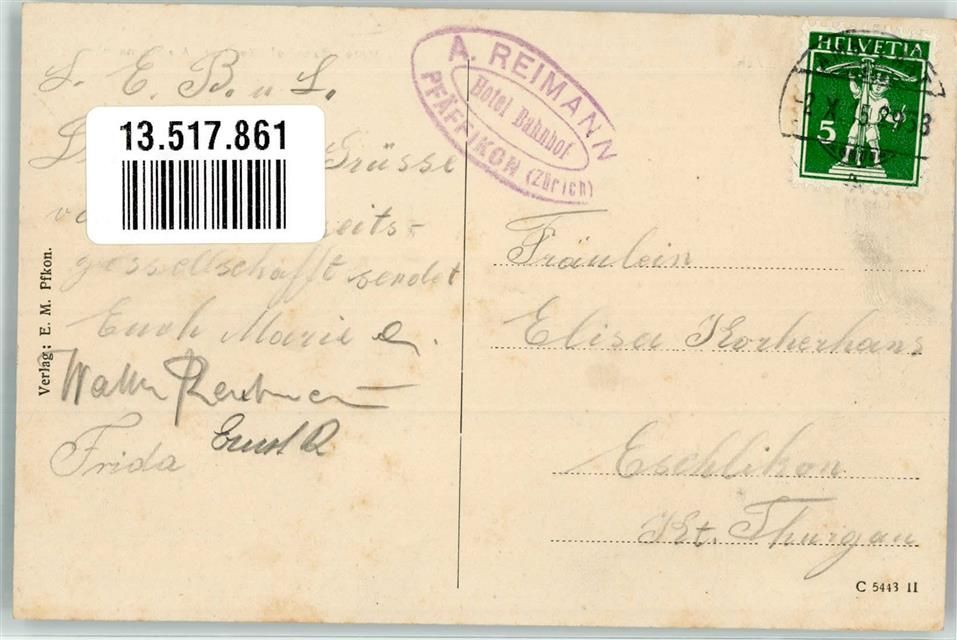 L. E. B. u. L.
Grüsse
zeits-
gessellschafft sendet
Euch Marie
Walter
Ernst R
Frida
13.517.861
Verlag: E. M. Pfkon.
A. REIMANN
Hotel Bahnhof
PFÄFFIKON (Zürich)
HELVETIA
5
Fräulein
Elisa Korherhans
Eschlikon
Kt. Thurgau
C 5443 II